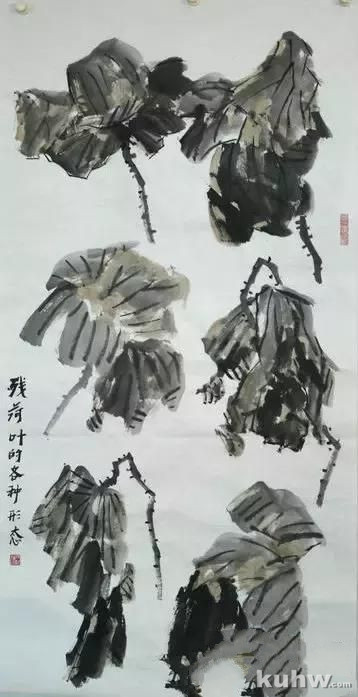 残荷叶的各种形态
kuhw.com